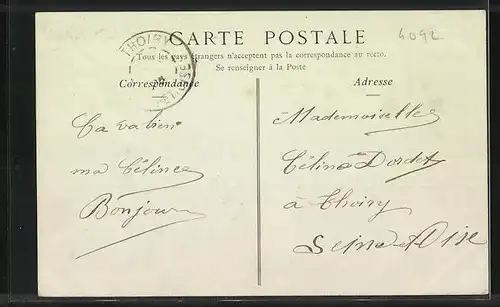 CARTE POSTALE
4092
Tous les pays étrangers n'acceptent pas la correspondance au recto.
Se renseigner à la Poste
THOIRY
Correspondance
Adresse
Ça va bien
ma Céline
Bonjour
Mademoiselle
Célina Dordet
à Thoiry
Seine & Oise